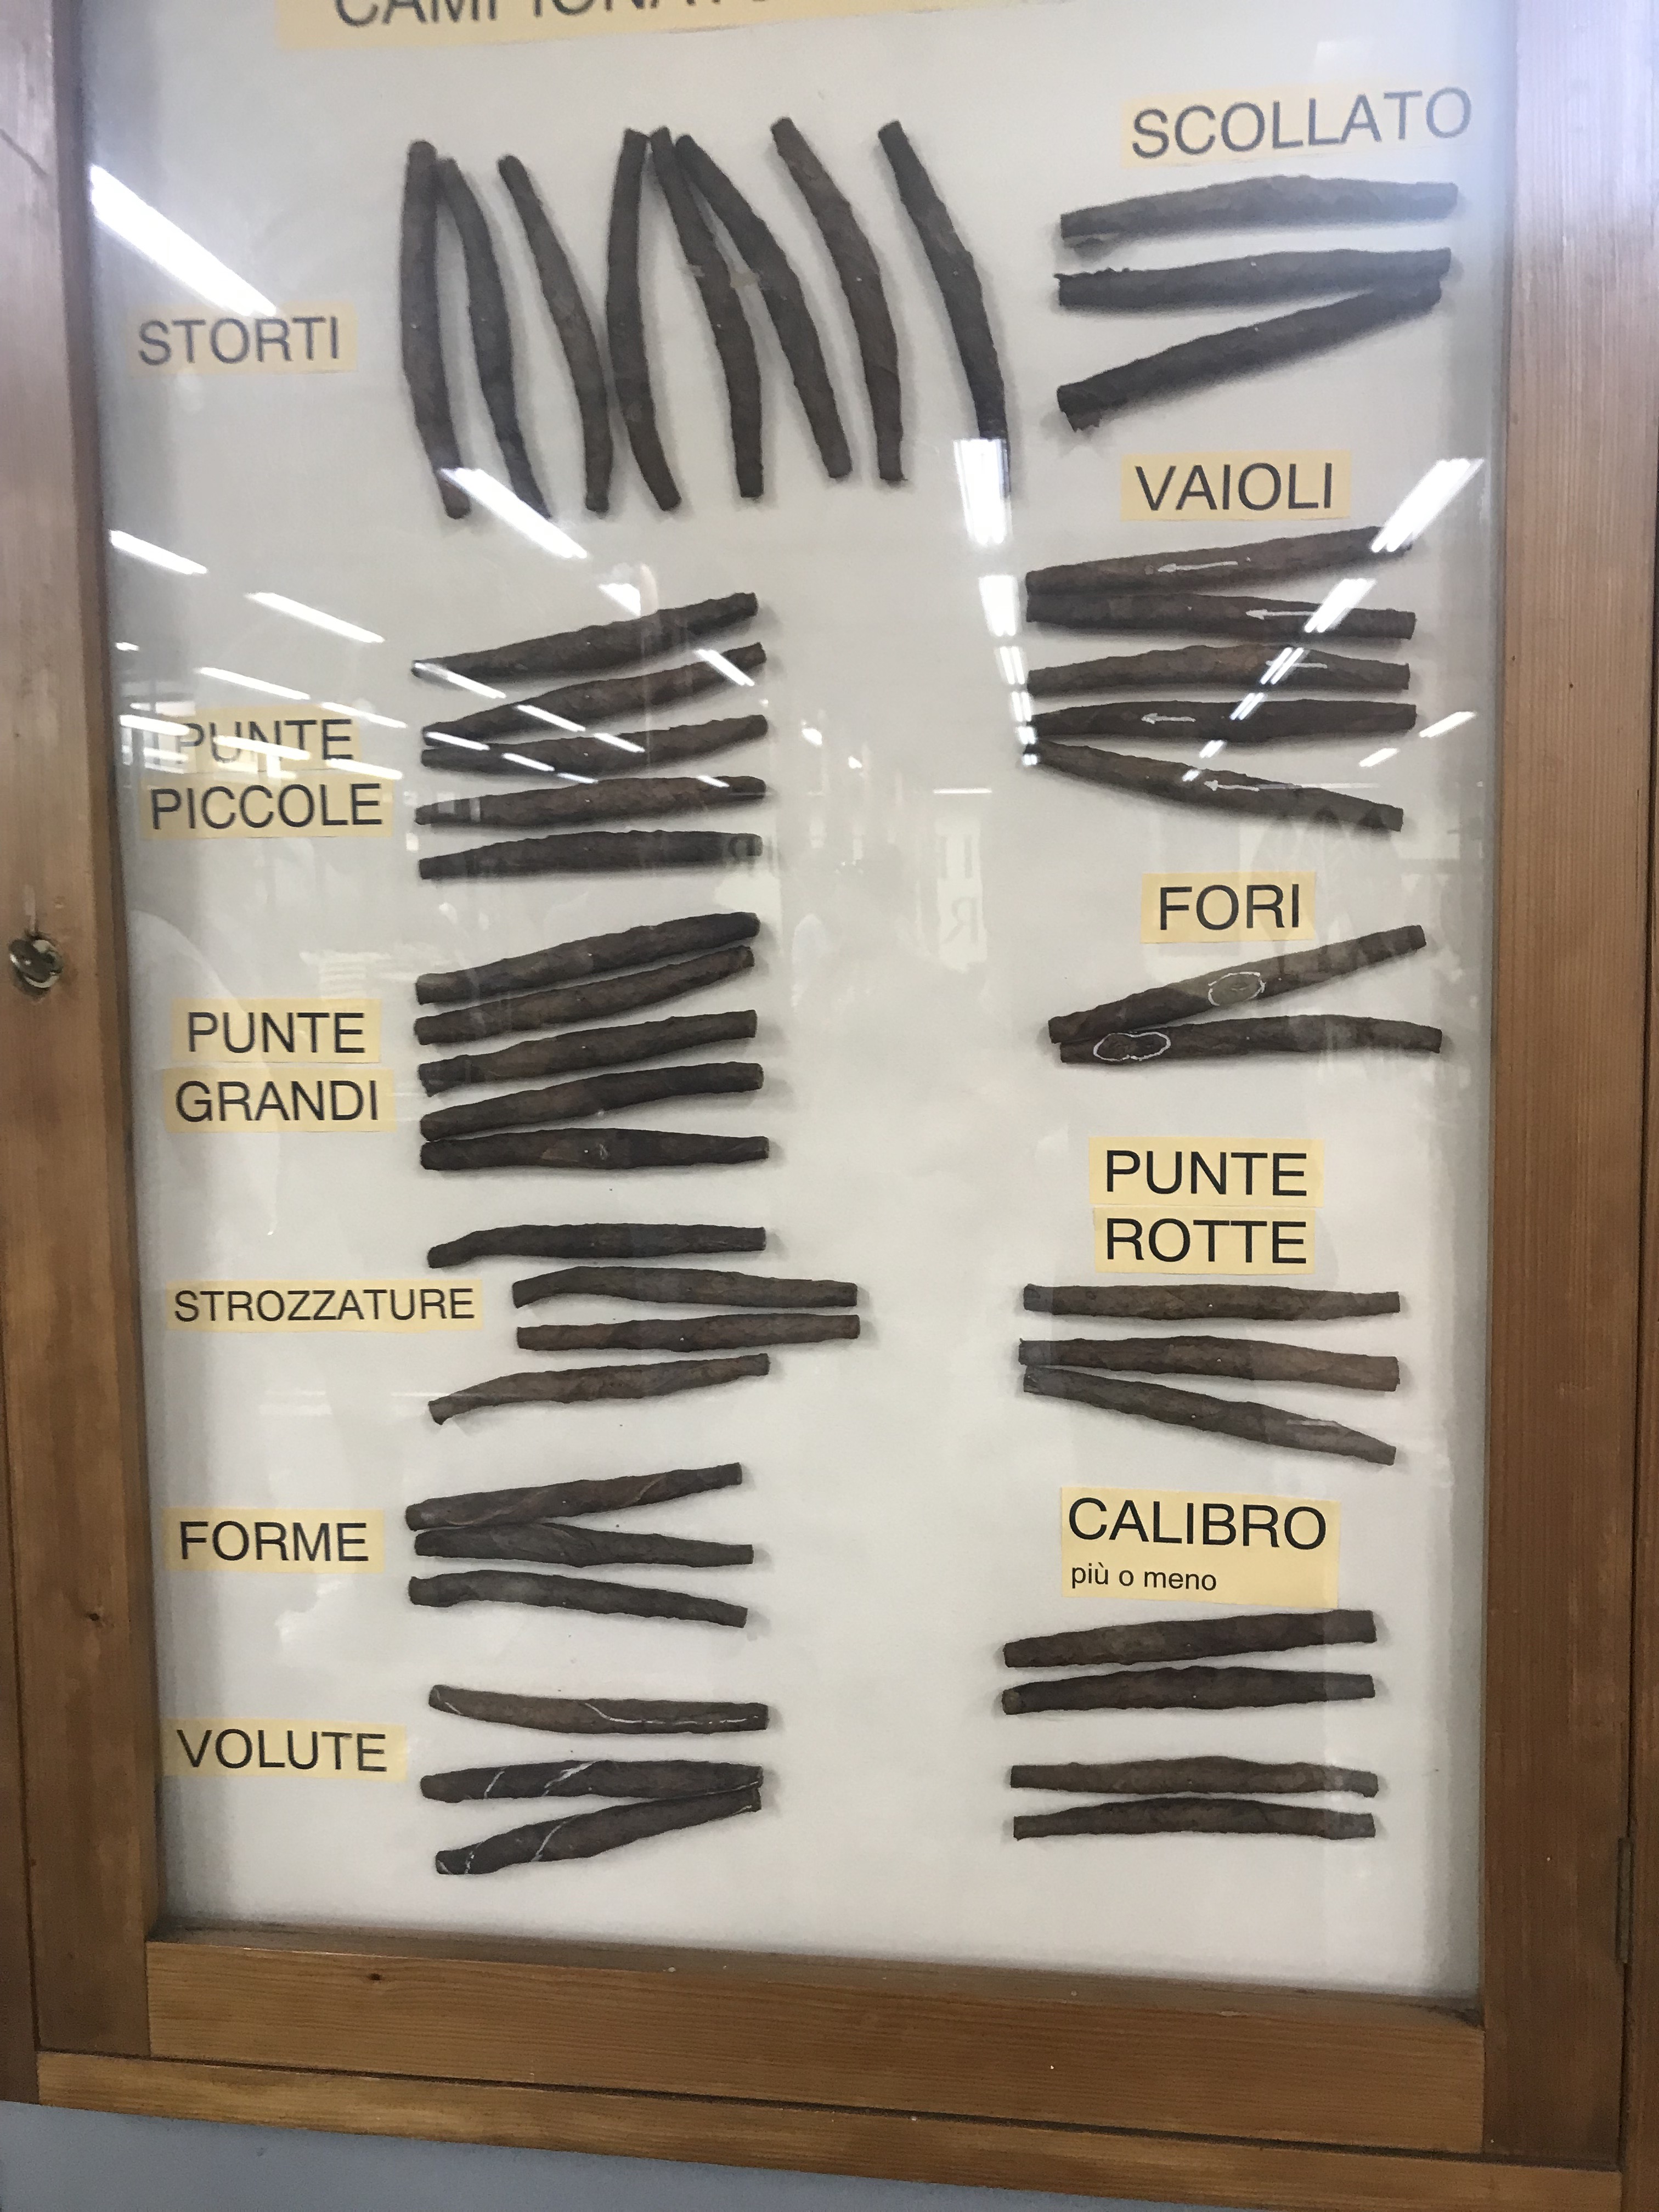 STORTI
PUNTE
PICCOLE
PUNTE
GRANDI
STROZZATURE
FORME
VOLUTE
SCOLLATO
VAIOLI
FORI
PUNTE
ROTTE
CALIBRO
più o meno